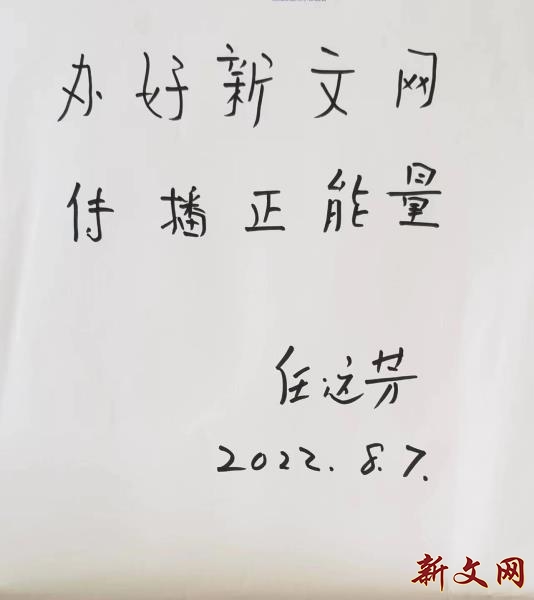 办好新文网
传播正能量
任远芳
2022.8.7.
新文网